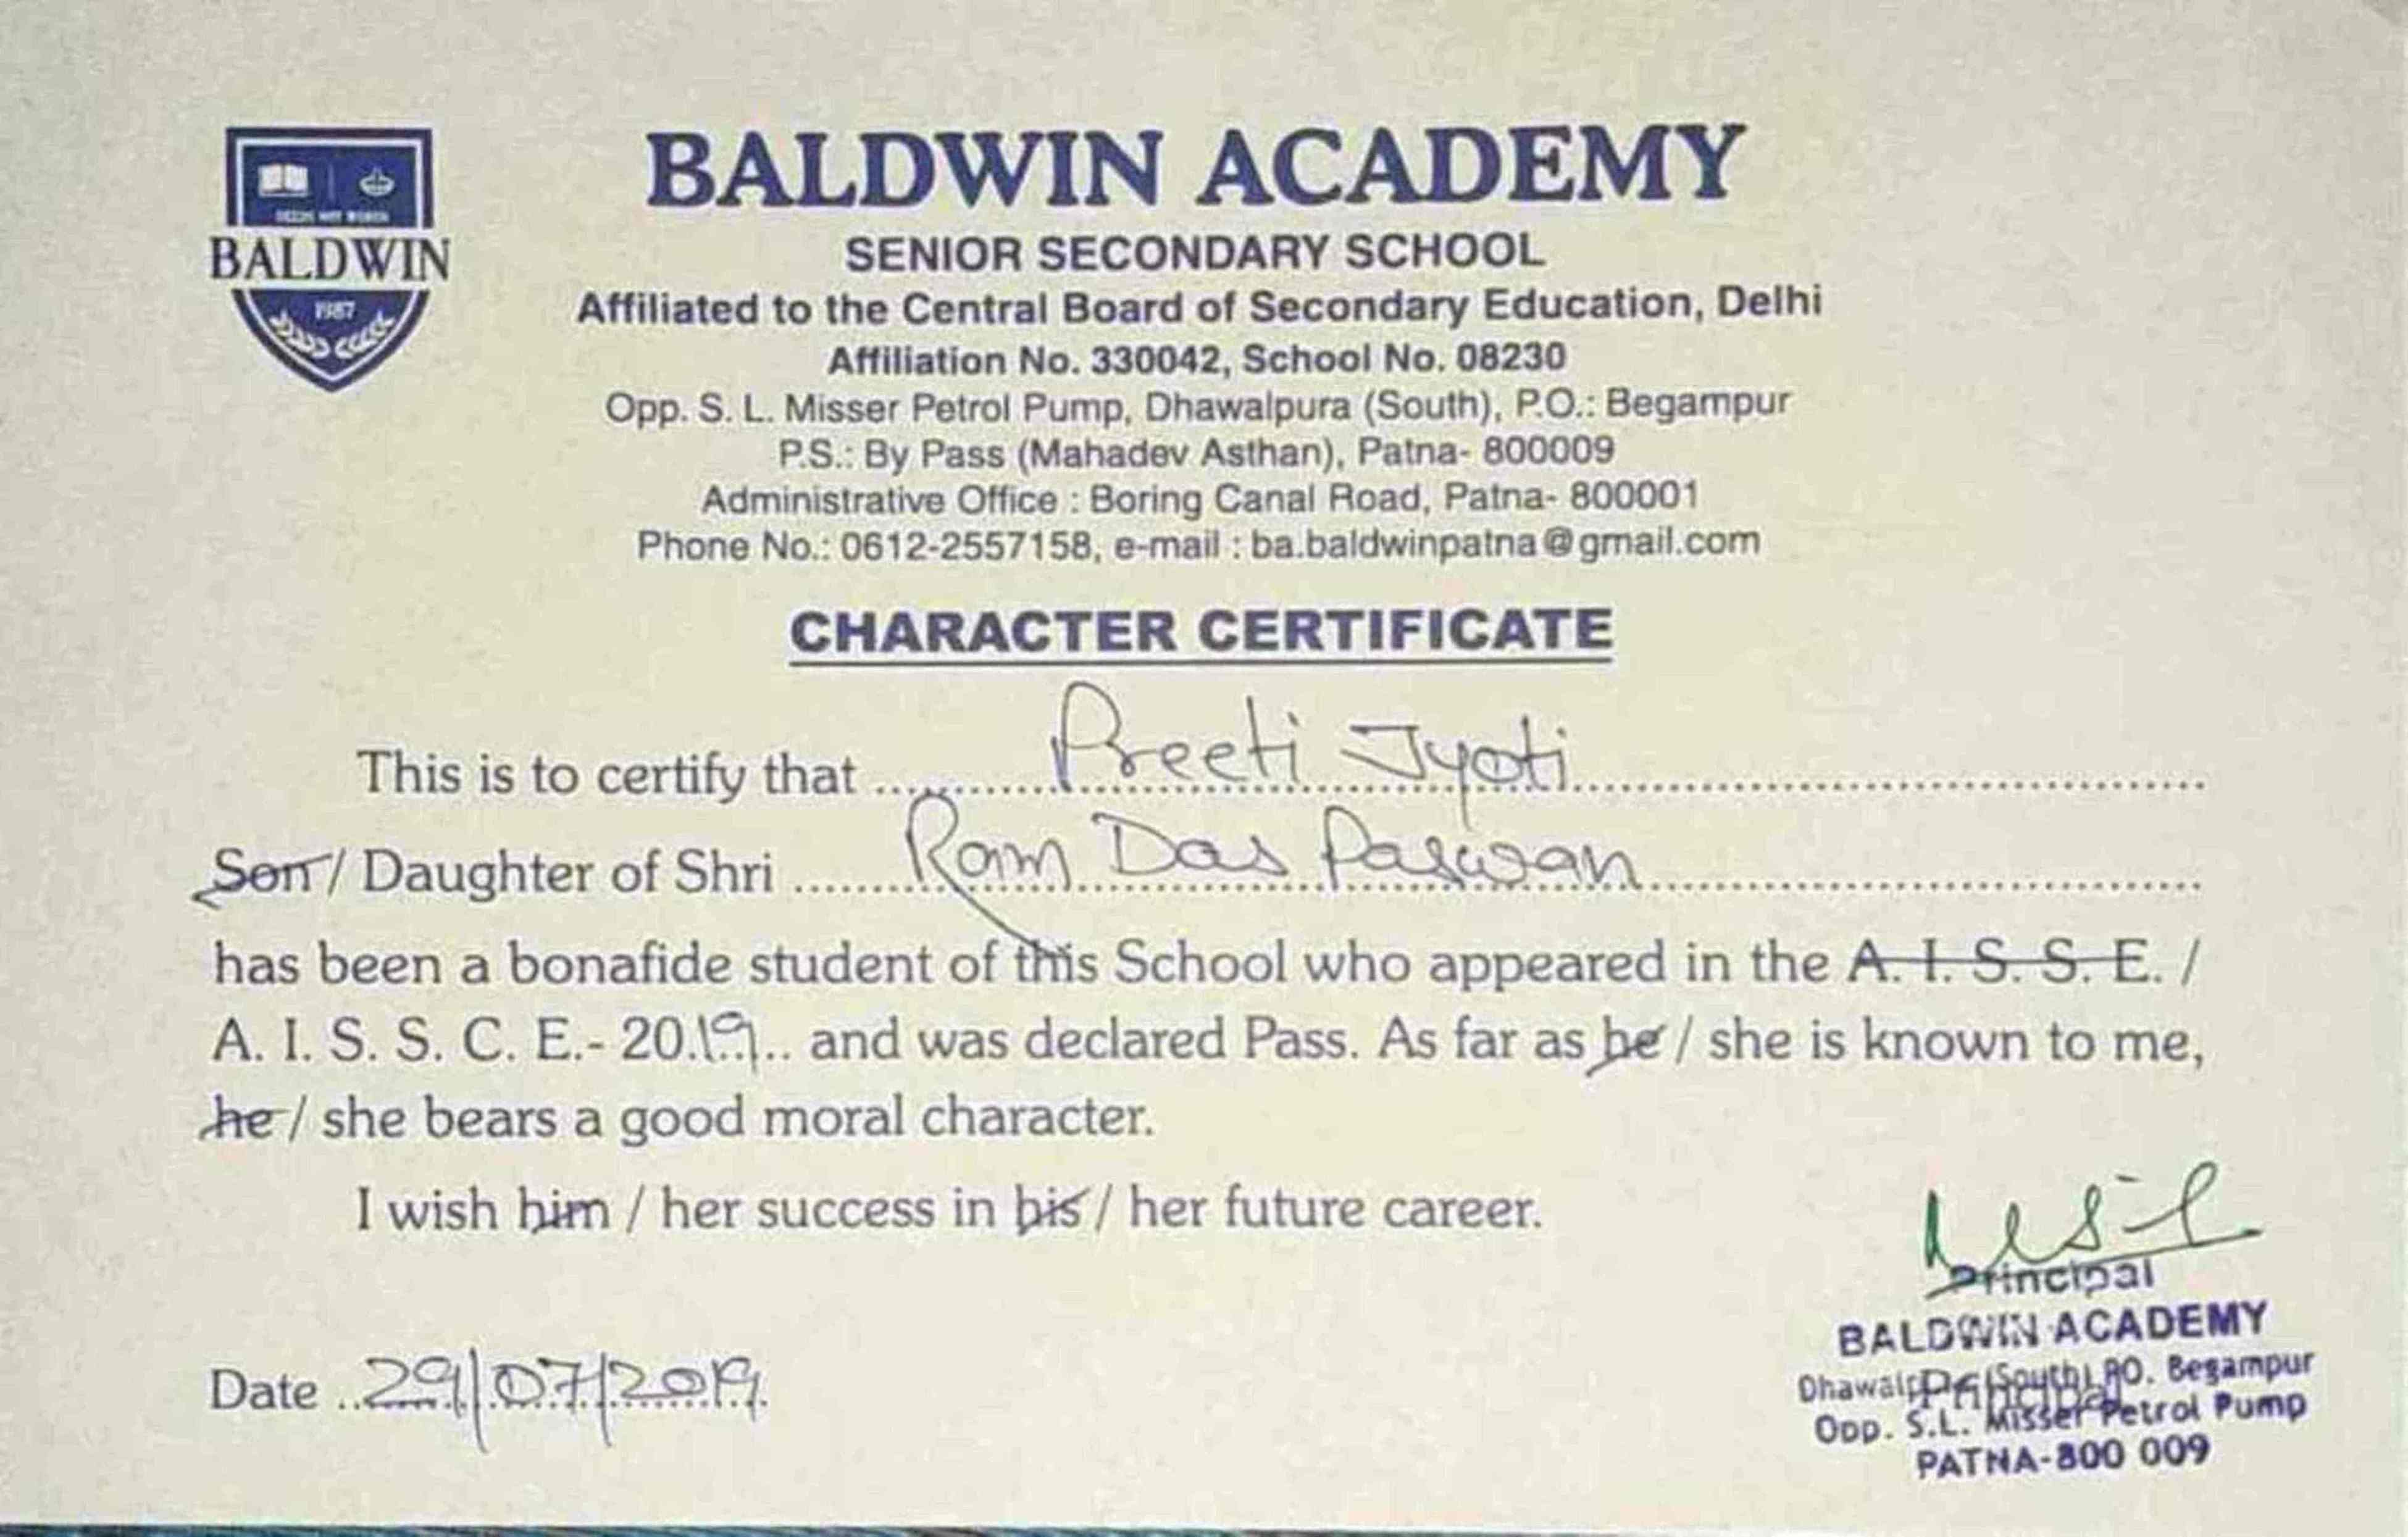 BALDWIN ACADEMY
SENIOR SECONDARY SCHOOL
Affiliated to the Central Board of Secondary Education, Delhi
Affiliation No. 330042, School No. 08230
Opp. S. L. Misser Petrol Pump, Dhawalpura (South), P.O.: Begampur
P.S.: By Pass (Mahadev Asthan), Patna- 800009
Administrative Office : Boring Canal Road, Patna- 800001
Phone No.: 0612-2557158, e-mail : ba.baldwinpatna@gmail.com
DEEDS NOT WORDS
BALDWIN
1987
CHARACTER CERTIFICATE
This is to certify that Preeti Jyoti
Son / Daughter of Shri Ram Das Paswan
has been a bonafide student of this School who appeared in the A. I. S. S. E. /
A. I. S. S. C. E.- 2019 and was declared Pass. As far as he / she is known to me,
he / she bears a good moral character.
I wish him / her success in his / her future career.
Date 29/07/2019
Principal
BALDWIN ACADEMY
(South) P.O. Begampur
Principal
Opp. S.L. Misser Petrol Pump
PATNA-800 009